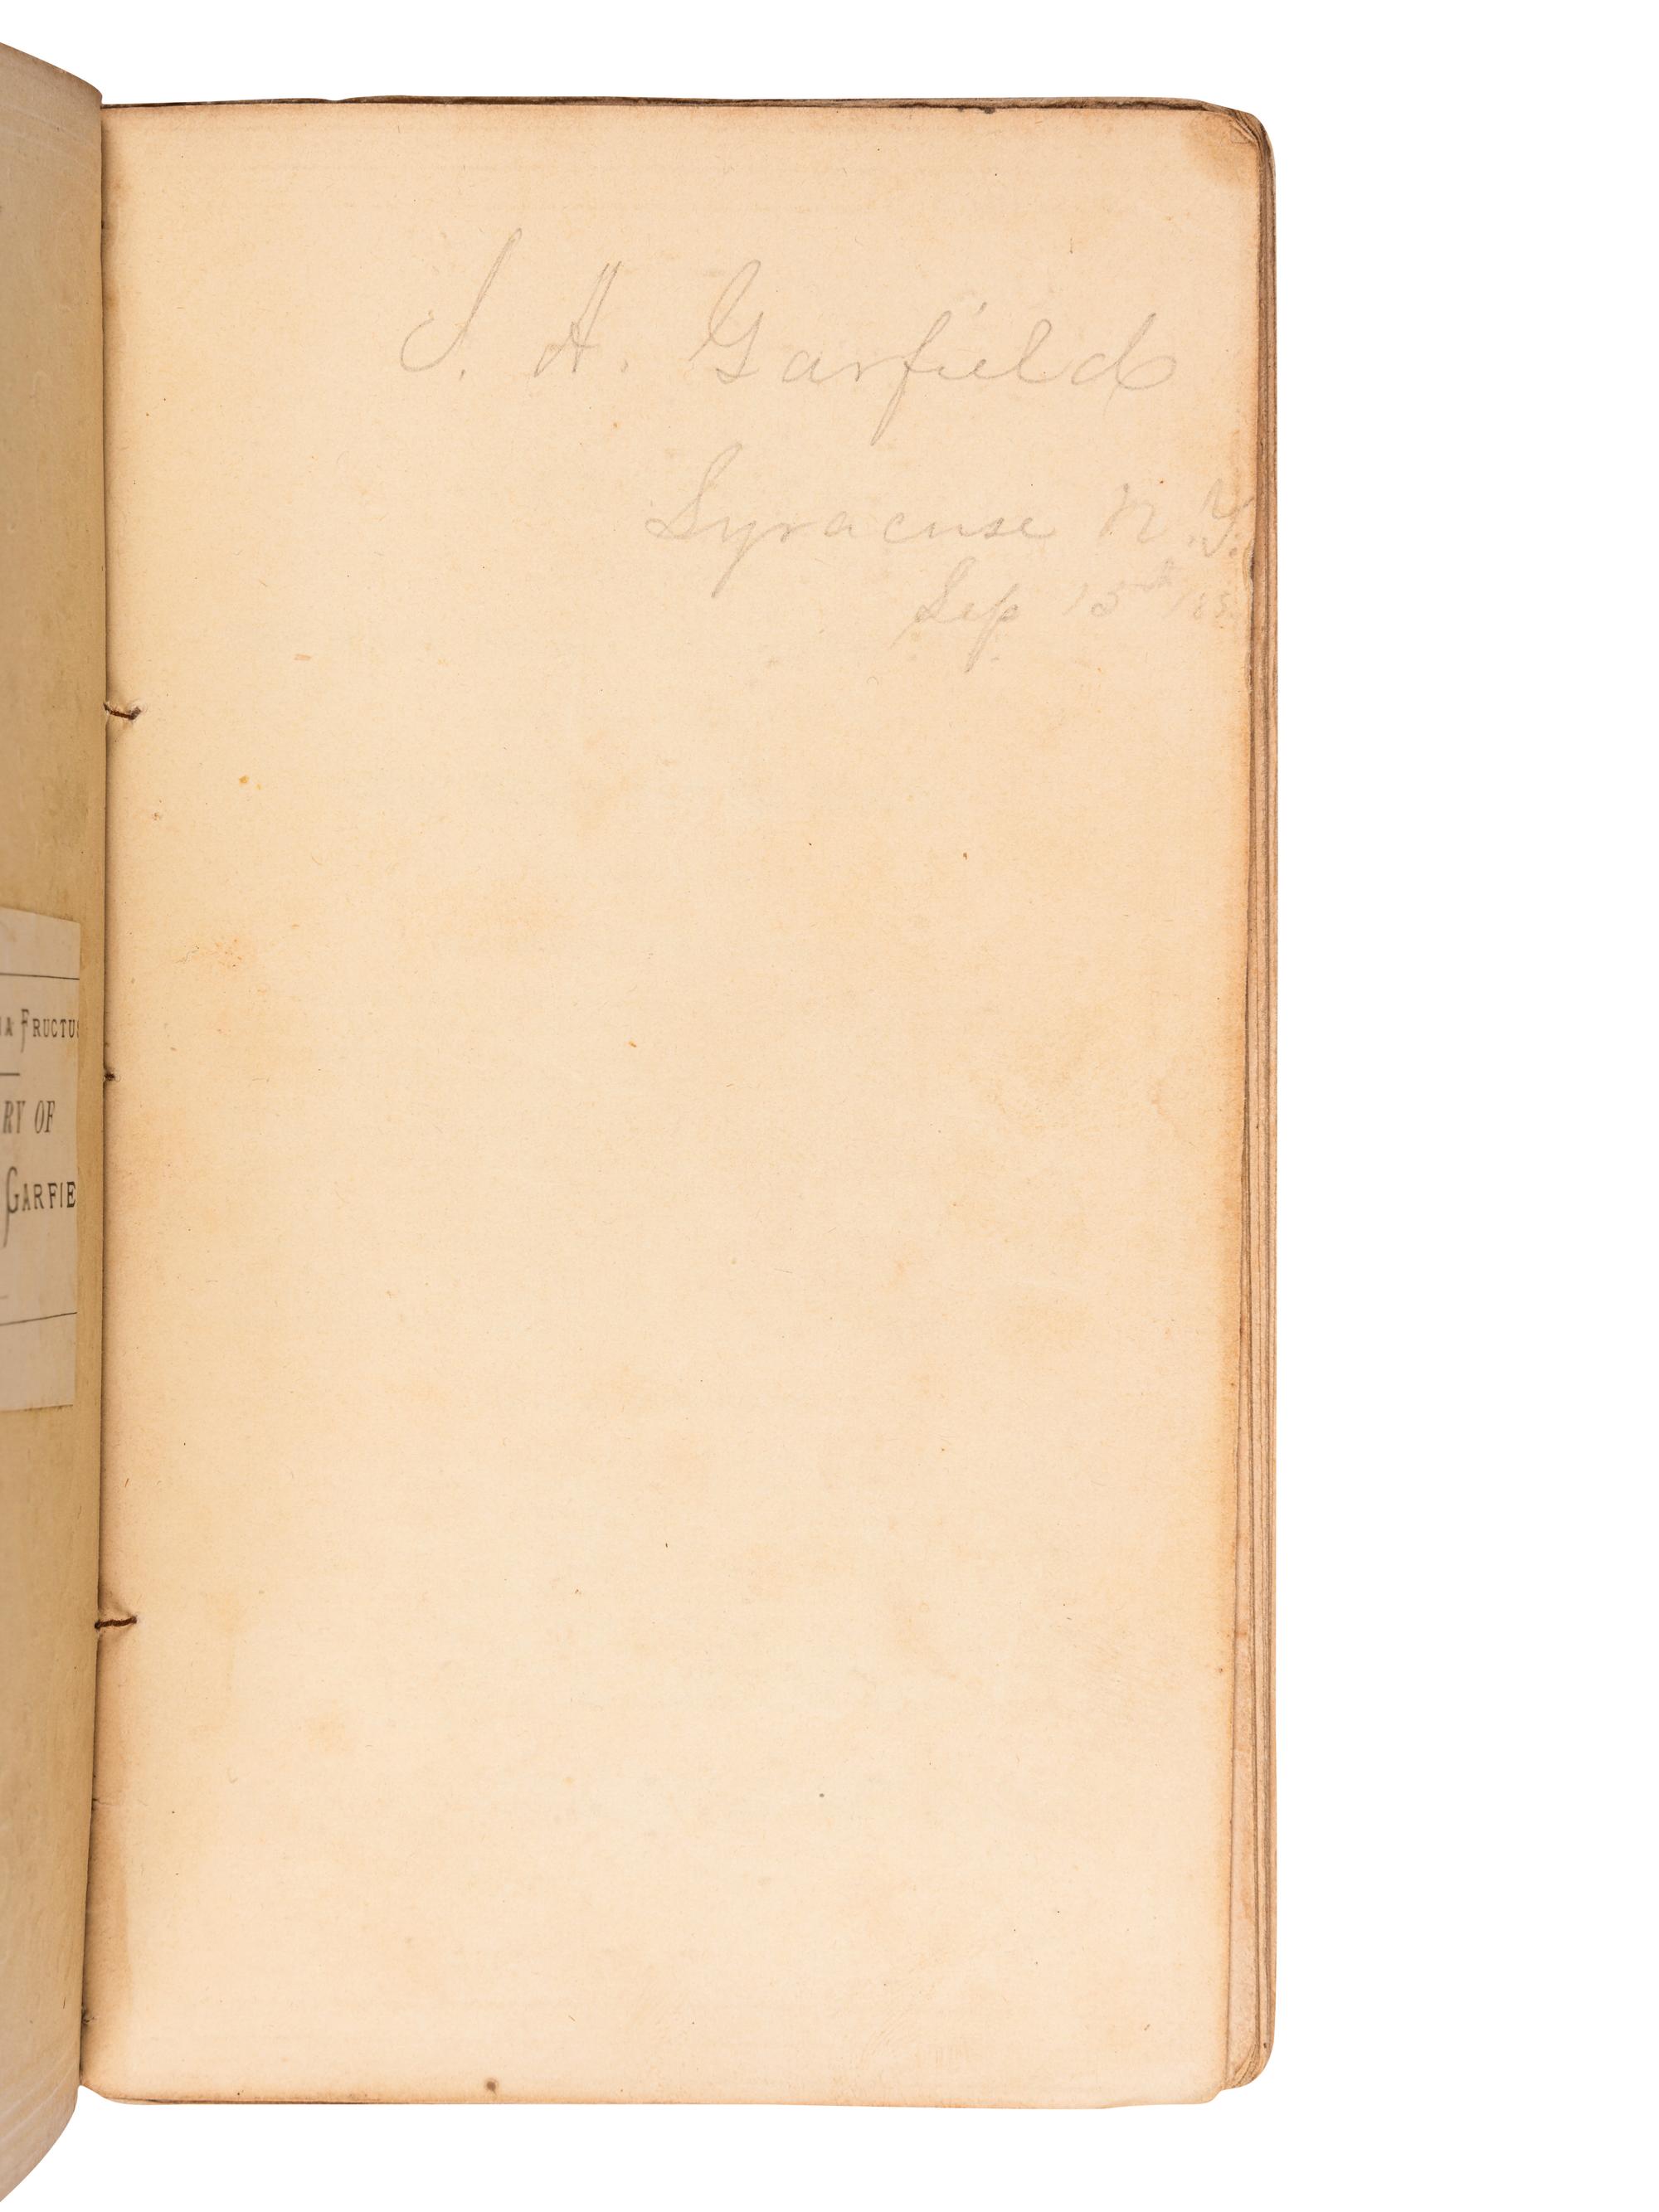 FRUCTUS
RY OF
GARFIE
J. A. Garfield
Syracuse N.Y.
Sep 15th